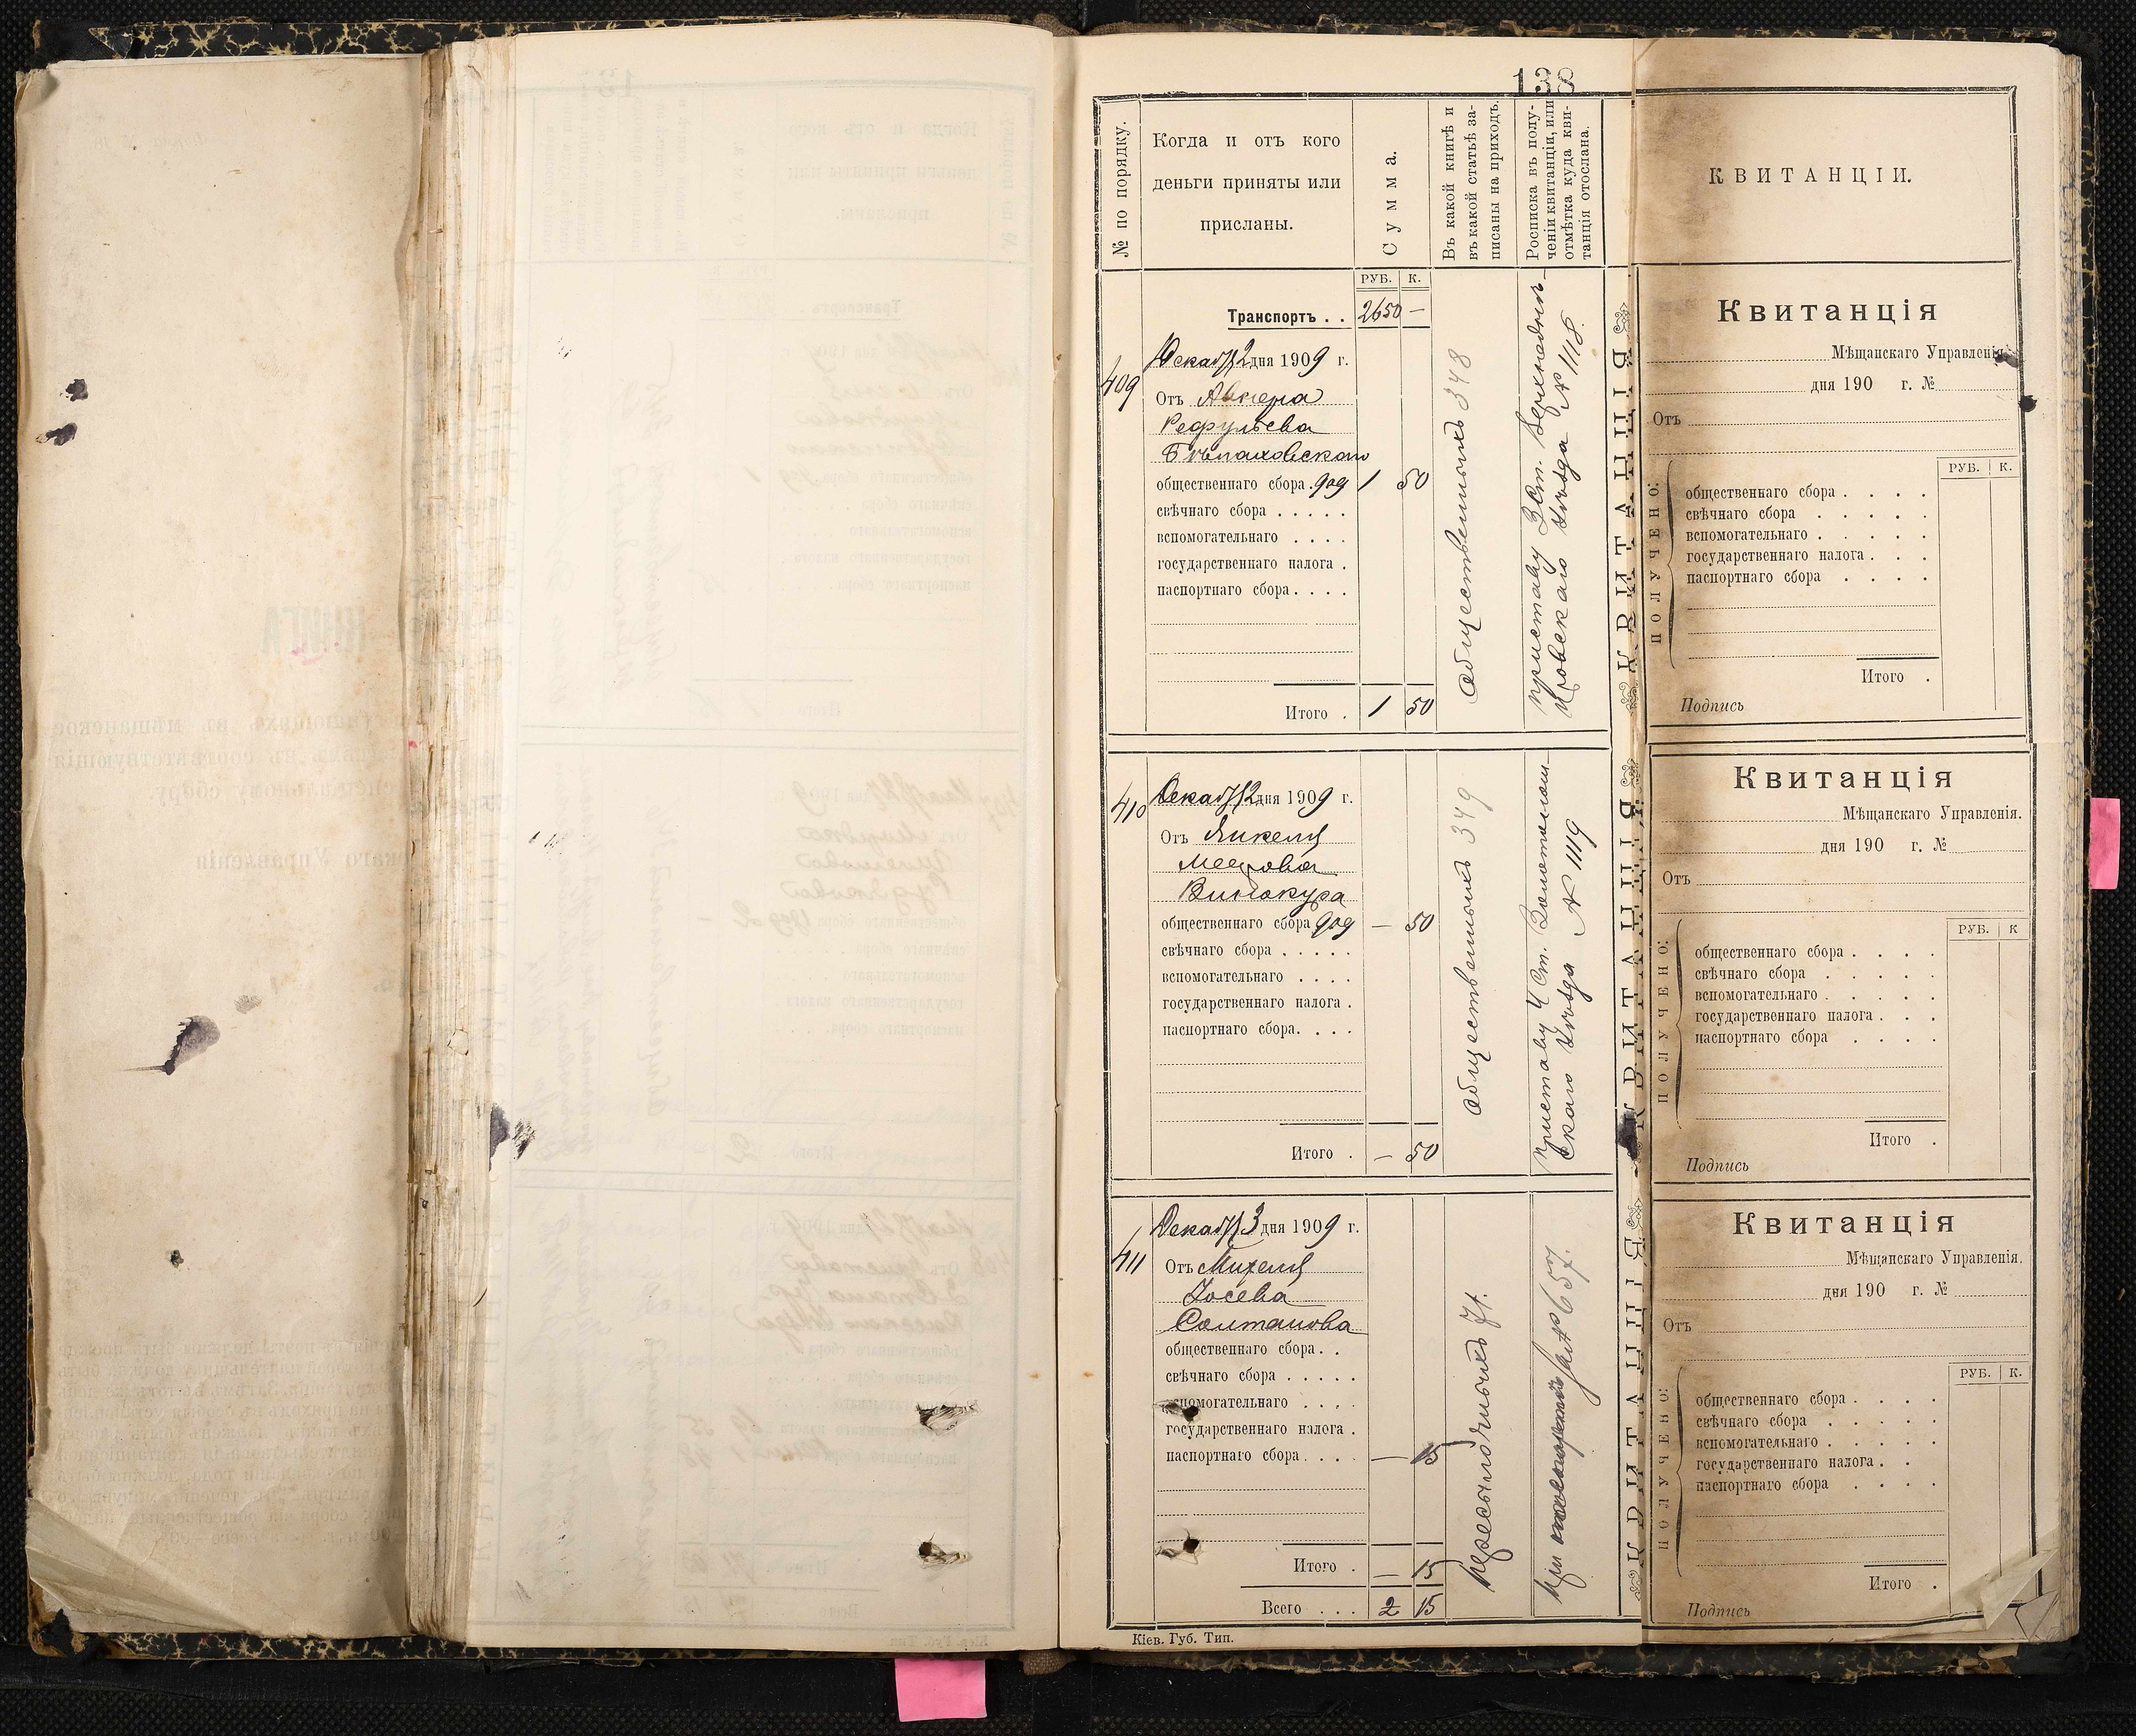 138
№ по порядку.
Когда и отъ кого
деньги приняты или
присланы.
Сумма.
Въ какой книгѣ и
въ какой статьѣ за-
писаны на приходъ.
Росписка въ полу-
ченіи квитанціи, или
отмѣтка куда кви-
танція отослана.
РУБ. К.
Транспортъ . . 2650 —
409
Декаб 2 дня 1909 г.
Отъ
общественнаго сбора . 909 1 50
свѣчнаго сбора . . . . .
вспомогательнаго . . . .
государственнаго налога .
паспортнаго сбора . . . .
Итого . 1 50
общественныхъ 348
приставу 3 ст. Верхнеднѣ-
провскаго уѣзда № 1118.
410
Декаб 2 дня 1909 г.
Отъ Янкеля
Меерова
Винокура
общественнаго сбора 909 — 50
свѣчнаго сбора . . . . .
вспомогательнаго . . . .
государственнаго налога .
паспортнаго сбора. . . .
Итого . — 50
общественныхъ 349
приставу 4 ст. Золотонош-
скаго уѣзда № 1119
411
Декаб 3 дня 1909 г.
Отъ Михеля
Іосева
Солтанова
общественнаго сбора . .
свѣчнаго сбора . . . . .
вспомогательнаго . . . .
государственнаго налога .
паспортнаго сбора . . . . — 15
Итого . — 15
Всего . . . 2 15
пересылочныхъ 71.
при № 657.
Кіев. Губ. Тип.
КВИТАНЦІИ.
Квитанція
Мѣщанскаго Управленія
дня 190 г. №
Отъ
РУБ. К.
ПОЛУЧЕНО:
общественнаго сбора . . . .
свѣчнаго сбора . . . . .
вспомогательнаго . . . . .
государственнаго налога . . .
паспортнаго сбора . . . .
Итого .
Подпись
Квитанція
Мѣщанскаго Управленія.
дня 190 г. №
Отъ
РУБ. К
ПОЛУЧЕНО:
общественнаго сбора . . . .
свѣчнаго сбора . . . . .
вспомогательнаго . . . . .
государственнаго налога . . .
паспортнаго сбора . . . .
Итого .
Подпись
Квитанція
Мѣщанскаго Управленія.
дня 190 г. №
Отъ
РУБ. К.
ПОЛУЧЕНО:
общественнаго сбора . . . .
свѣчнаго сбора . . . . .
вспомогательнаго . . . . .
государственнаго налога . .
паспортнаго сбора . . . .
Итого .
Подпись